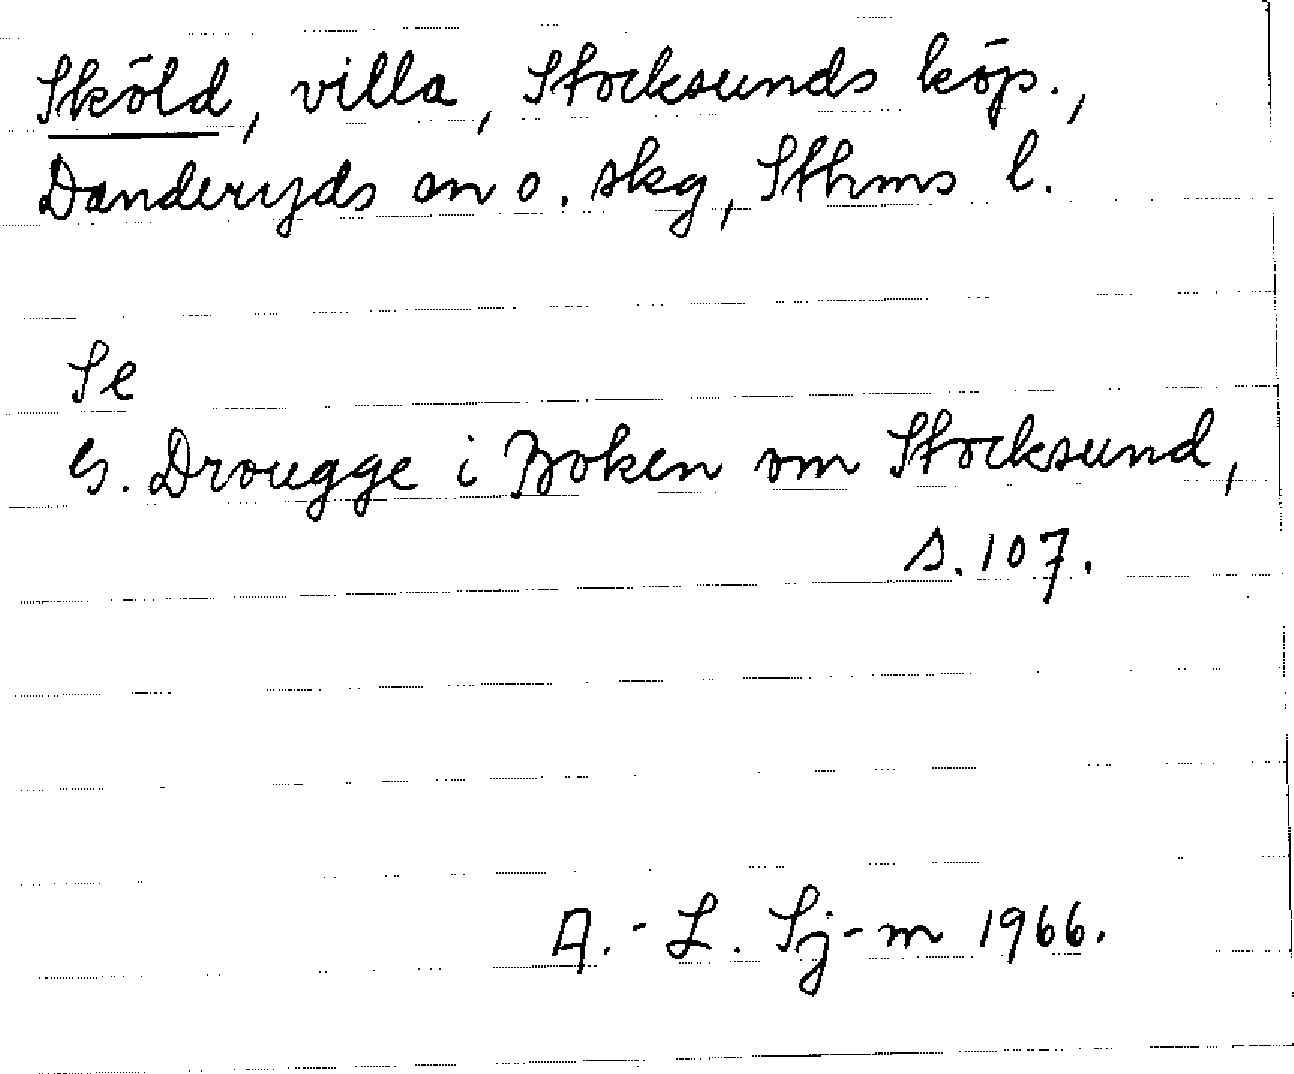 Sköld, villa, Stocksunds köp.,
Danderyds sn o. skg, Sthms l.
Se
G. Drougge i Boken om Stocksund,
s. 107.
A.-L. Sj-m 1966.